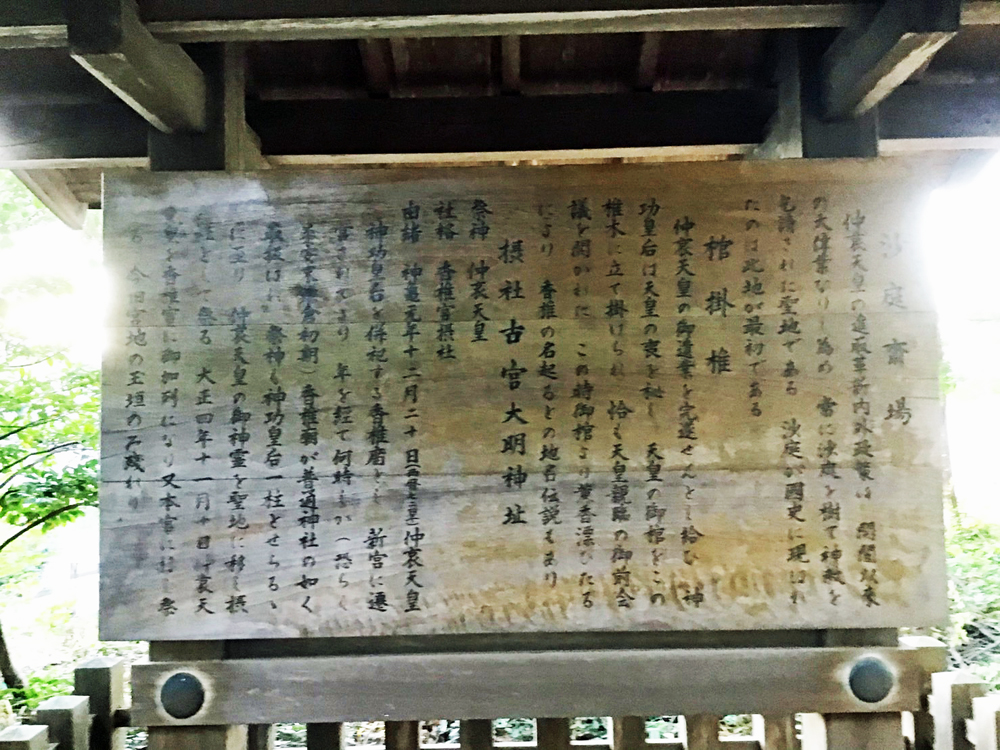 沙庭斎場
仲哀天皇の進取革新内外政策は 開闢以来
の大偉業なりし為め 常に沙庭を樹て神教を
乞請された聖地である 沙庭が国史に現はれ
たのは此地が最初である
棺掛椎
仲哀天皇の御遺業を完遂せんとし給ひ 神
功皇后は天皇の喪を秘し 天皇の御棺をこの
椎木に立て掛けられ 恰も天皇親臨の御前会
議を開かれた この時御棺より薫香漂ひたる
により 香椎の名起るとの地名伝説もあり
摂社古宮大明神址
祭神 仲哀天皇
社格 香椎宮摂社
由緒 神亀元年十二月二十日 仲哀天皇
神功皇后を併祀する香椎廟をも 新宮に遷
宮されてより 年を経て何時しか(恐らく
鎌倉初期)香椎廟が普通神社の如く
取扱はれ 祭神も神功皇后一柱とせらるゝ
に至り 仲哀天皇の御神霊を聖地に移し摂
社として祭る 大正四年十一月十日仲哀天
皇を香椎宮に御加列になり又本宮に
る 今旧宮地の玉垣のみ残れり